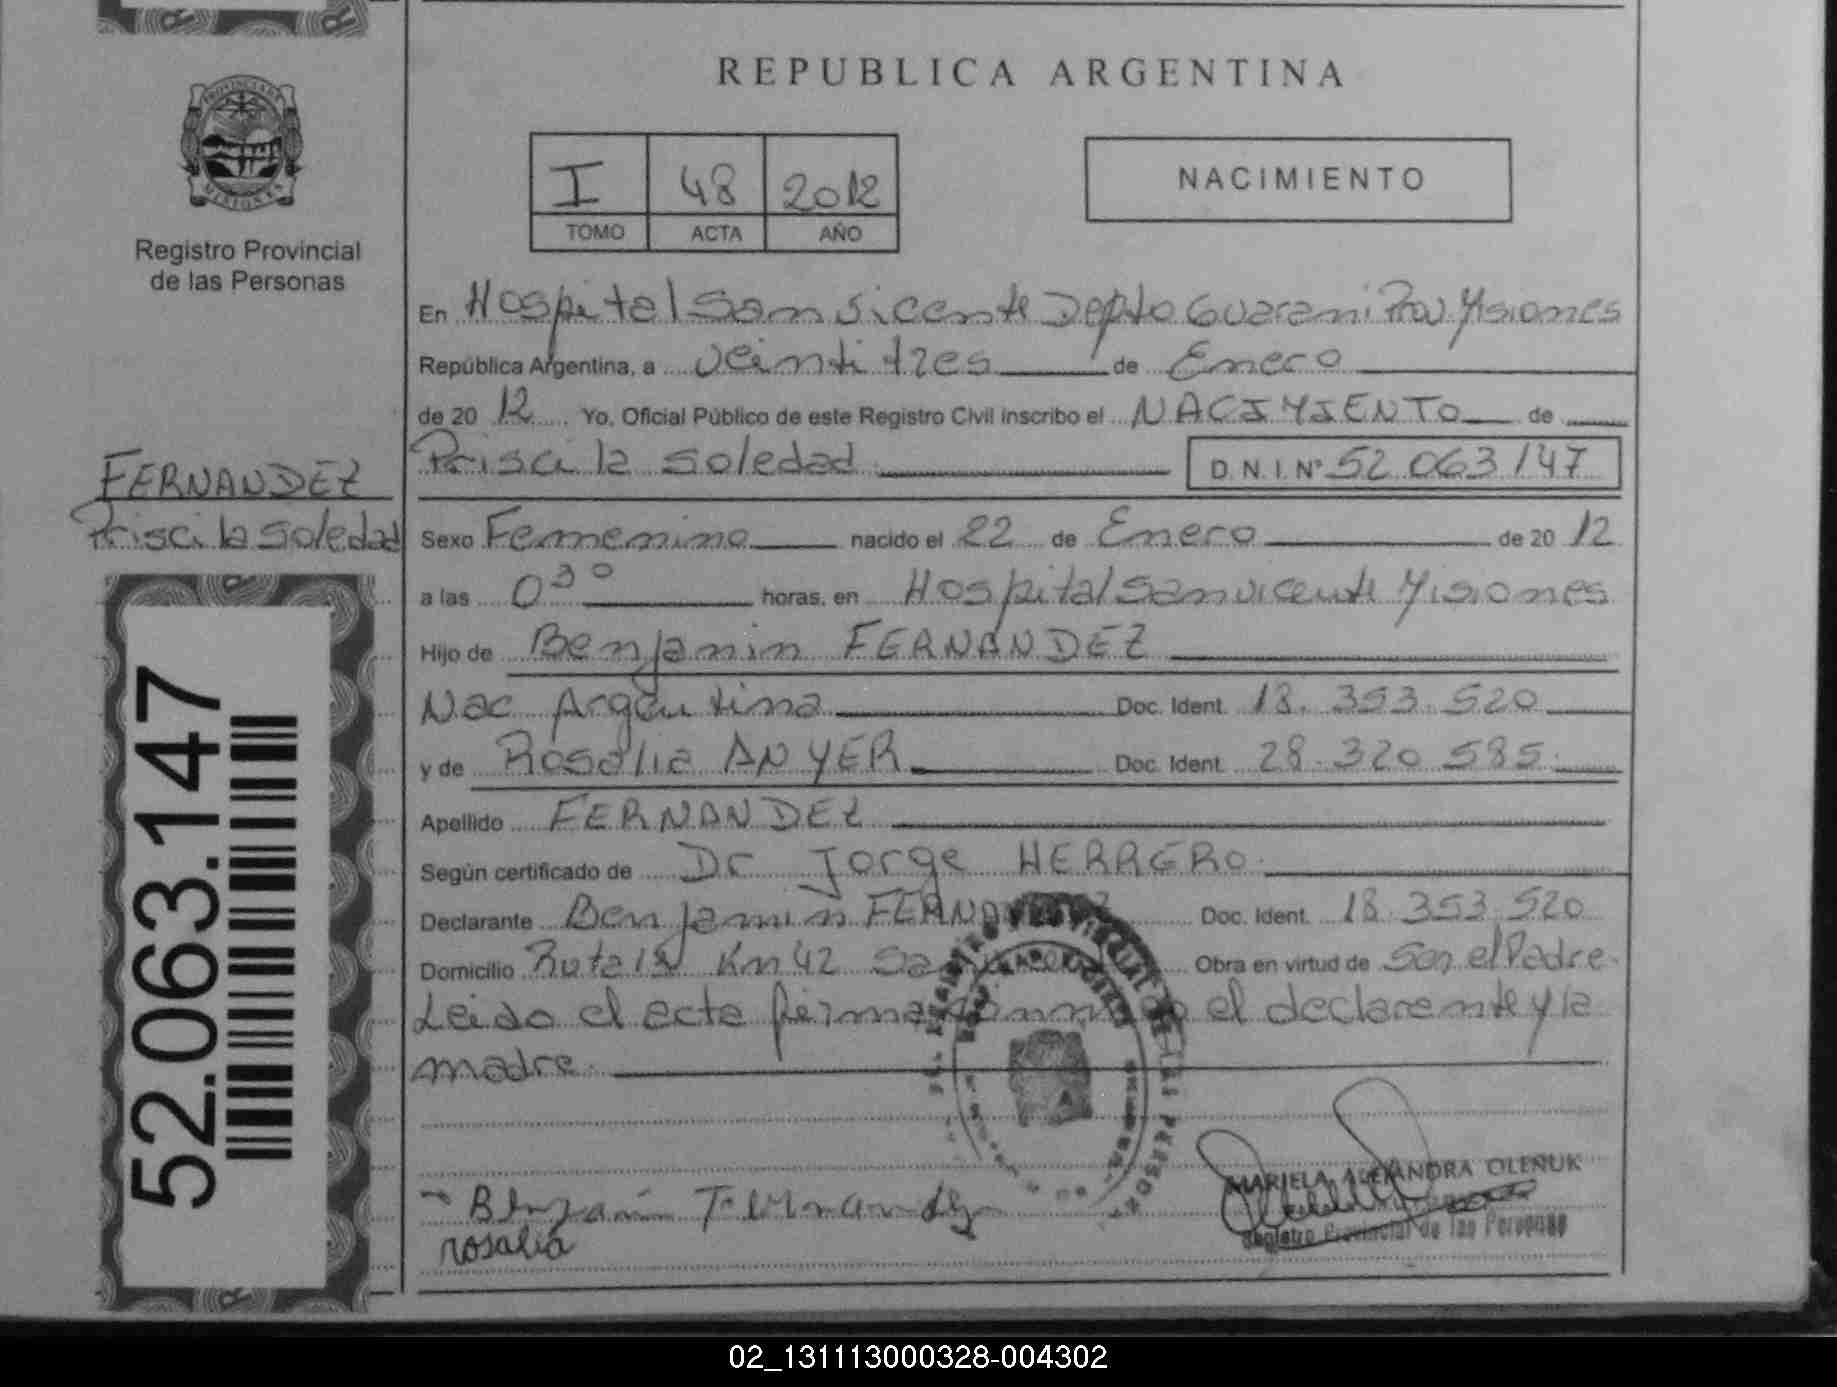 REPUBLICA ARGENTINA
PROVINCIA DE
MISIONES
Registro Provincial
de las Personas
I 48 2012
TOMO ACTA AÑO
NACIMIENTO
En Hospital San Vicente Depto Guarani Prov Misiones
República Argentina, a veintitres de Enero
de 20 12 Yo, Oficial Público de este Registro Civil inscribo el NACIMIENTO de
Priscila Soledad D.N.I. N° 52.063.147
FERNANDEZ
Priscila Soledad
Sexo Femenino nacido el 22 de Enero de 20 12
a las 0 30 horas, en Hospital San Vicente Misiones
Hijo de Benjamin FERNANDEZ
Nac Argentina Doc. Ident. 18.353.520
y de Rosalia ANYER Doc. Ident. 28.320.585
Apellido FERNANDEZ
Según certificado de Dr Jorge HERRERO
Declarante Benjamin FERNANDEZ Doc. Ident. 18.353.520
Domicilio Ruta Km 42 Obra en virtud de Ser el Padre
Leido el acta firman el declarante y la
madre.
52.063.147
Benjamin Fernandez
rosalia
MARIELA ALEJANDRA OLEÑUK
Registro Provincial de las Personas
02_131113000328-004302